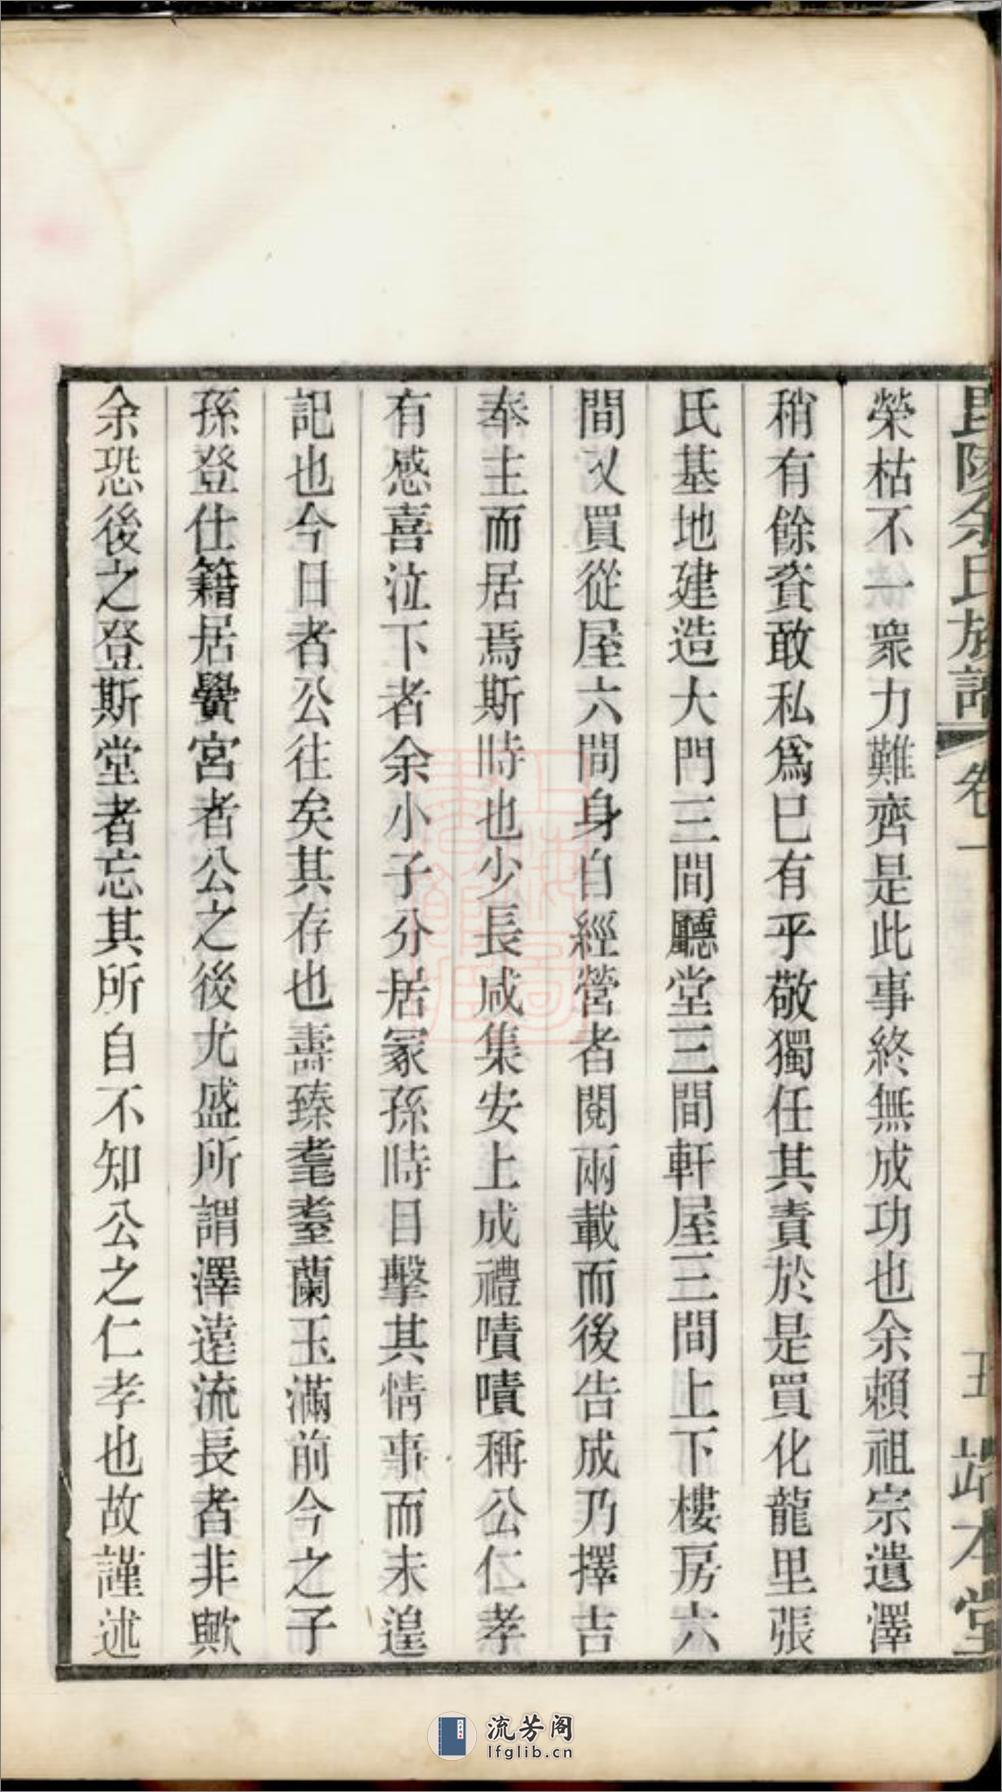 毘陵余氏族譜 卷一 五 敦本堂
榮枯不一衆力難齊是此事終無成功也余賴祖宗遺澤
稍有餘資敢私爲巳有乎敬獨任其責於是買化龍里張
氏基地建造大門三間廳堂三間軒屋三間上下樓房六
間又買從屋六間身自經營者閱兩載而後告成乃擇吉
奉主而居焉斯時也少長咸集安上成禮嘖嘖稱公仁孝
有感喜泣下者余小子分居冢孫時目擊其情事而未遑
記也今日者公往矣其存也壽臻耄耋蘭玉滿前今之子
孫登仕籍居黌宮者公之後尤盛所謂澤遠流長者非歟
余恐後之登斯堂者忘其所自不知公之仁孝也故謹述
流芳阁
lfglib.cn